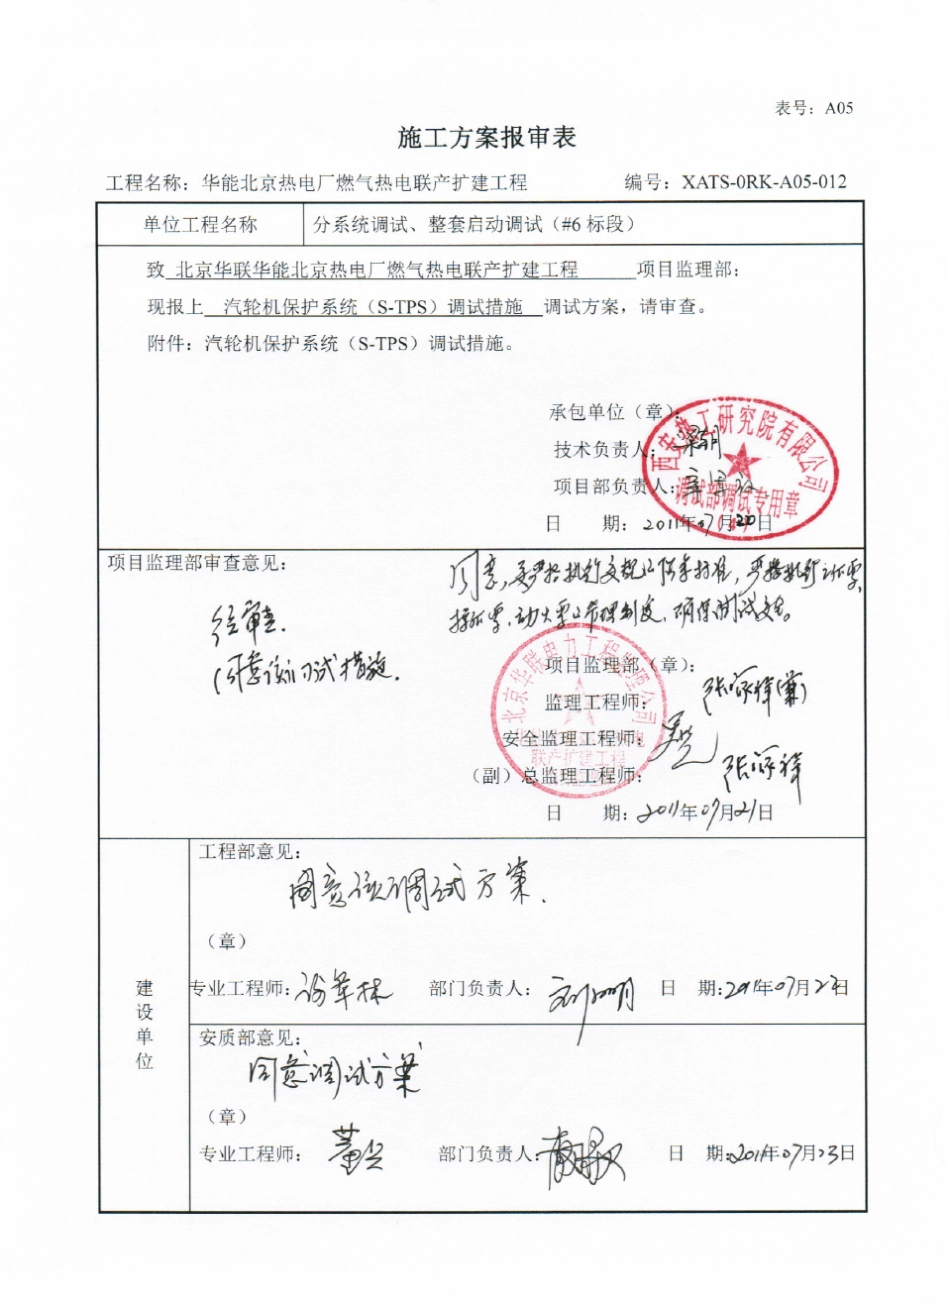 表号：A05
施工方案报审表
工程名称：华能北京热电厂燃气热电联产扩建工程 编号：XATS-0RK-A05-012
单位工程名称 分系统调试、整套启动调试（#6 标段）
致 北京华联华能北京热电厂燃气热电联产扩建工程 项目监理部：
现报上 汽轮机保护系统（S-TPS）调试措施 调试方案，请审查。
附件：汽轮机保护系统（S-TPS）调试措施。
承包单位（章）：
技术负责人：
项目部负责人：
日 期：2011年07月20日
西安热工研究院有限公司
调试部调试专用章
项目监理部审查意见：
经审查.
同意该调试措施.
同意，要严格执行
动火票等管理制度，确保调试安全。
项目监理部（章）：
监理工程师：
安全监理工程师：
（副）总监理工程师：
日 期：2011年07月21日
北京华联电力工程监理公司
联产扩建工程
建设单位
工程部意见：
同意该调试方案.
（章）
专业工程师： 部门负责人： 日 期：2011年07月23日
安质部意见：
同意调试方案
（章）
专业工程师： 部门负责人： 日 期：2011年07月23日